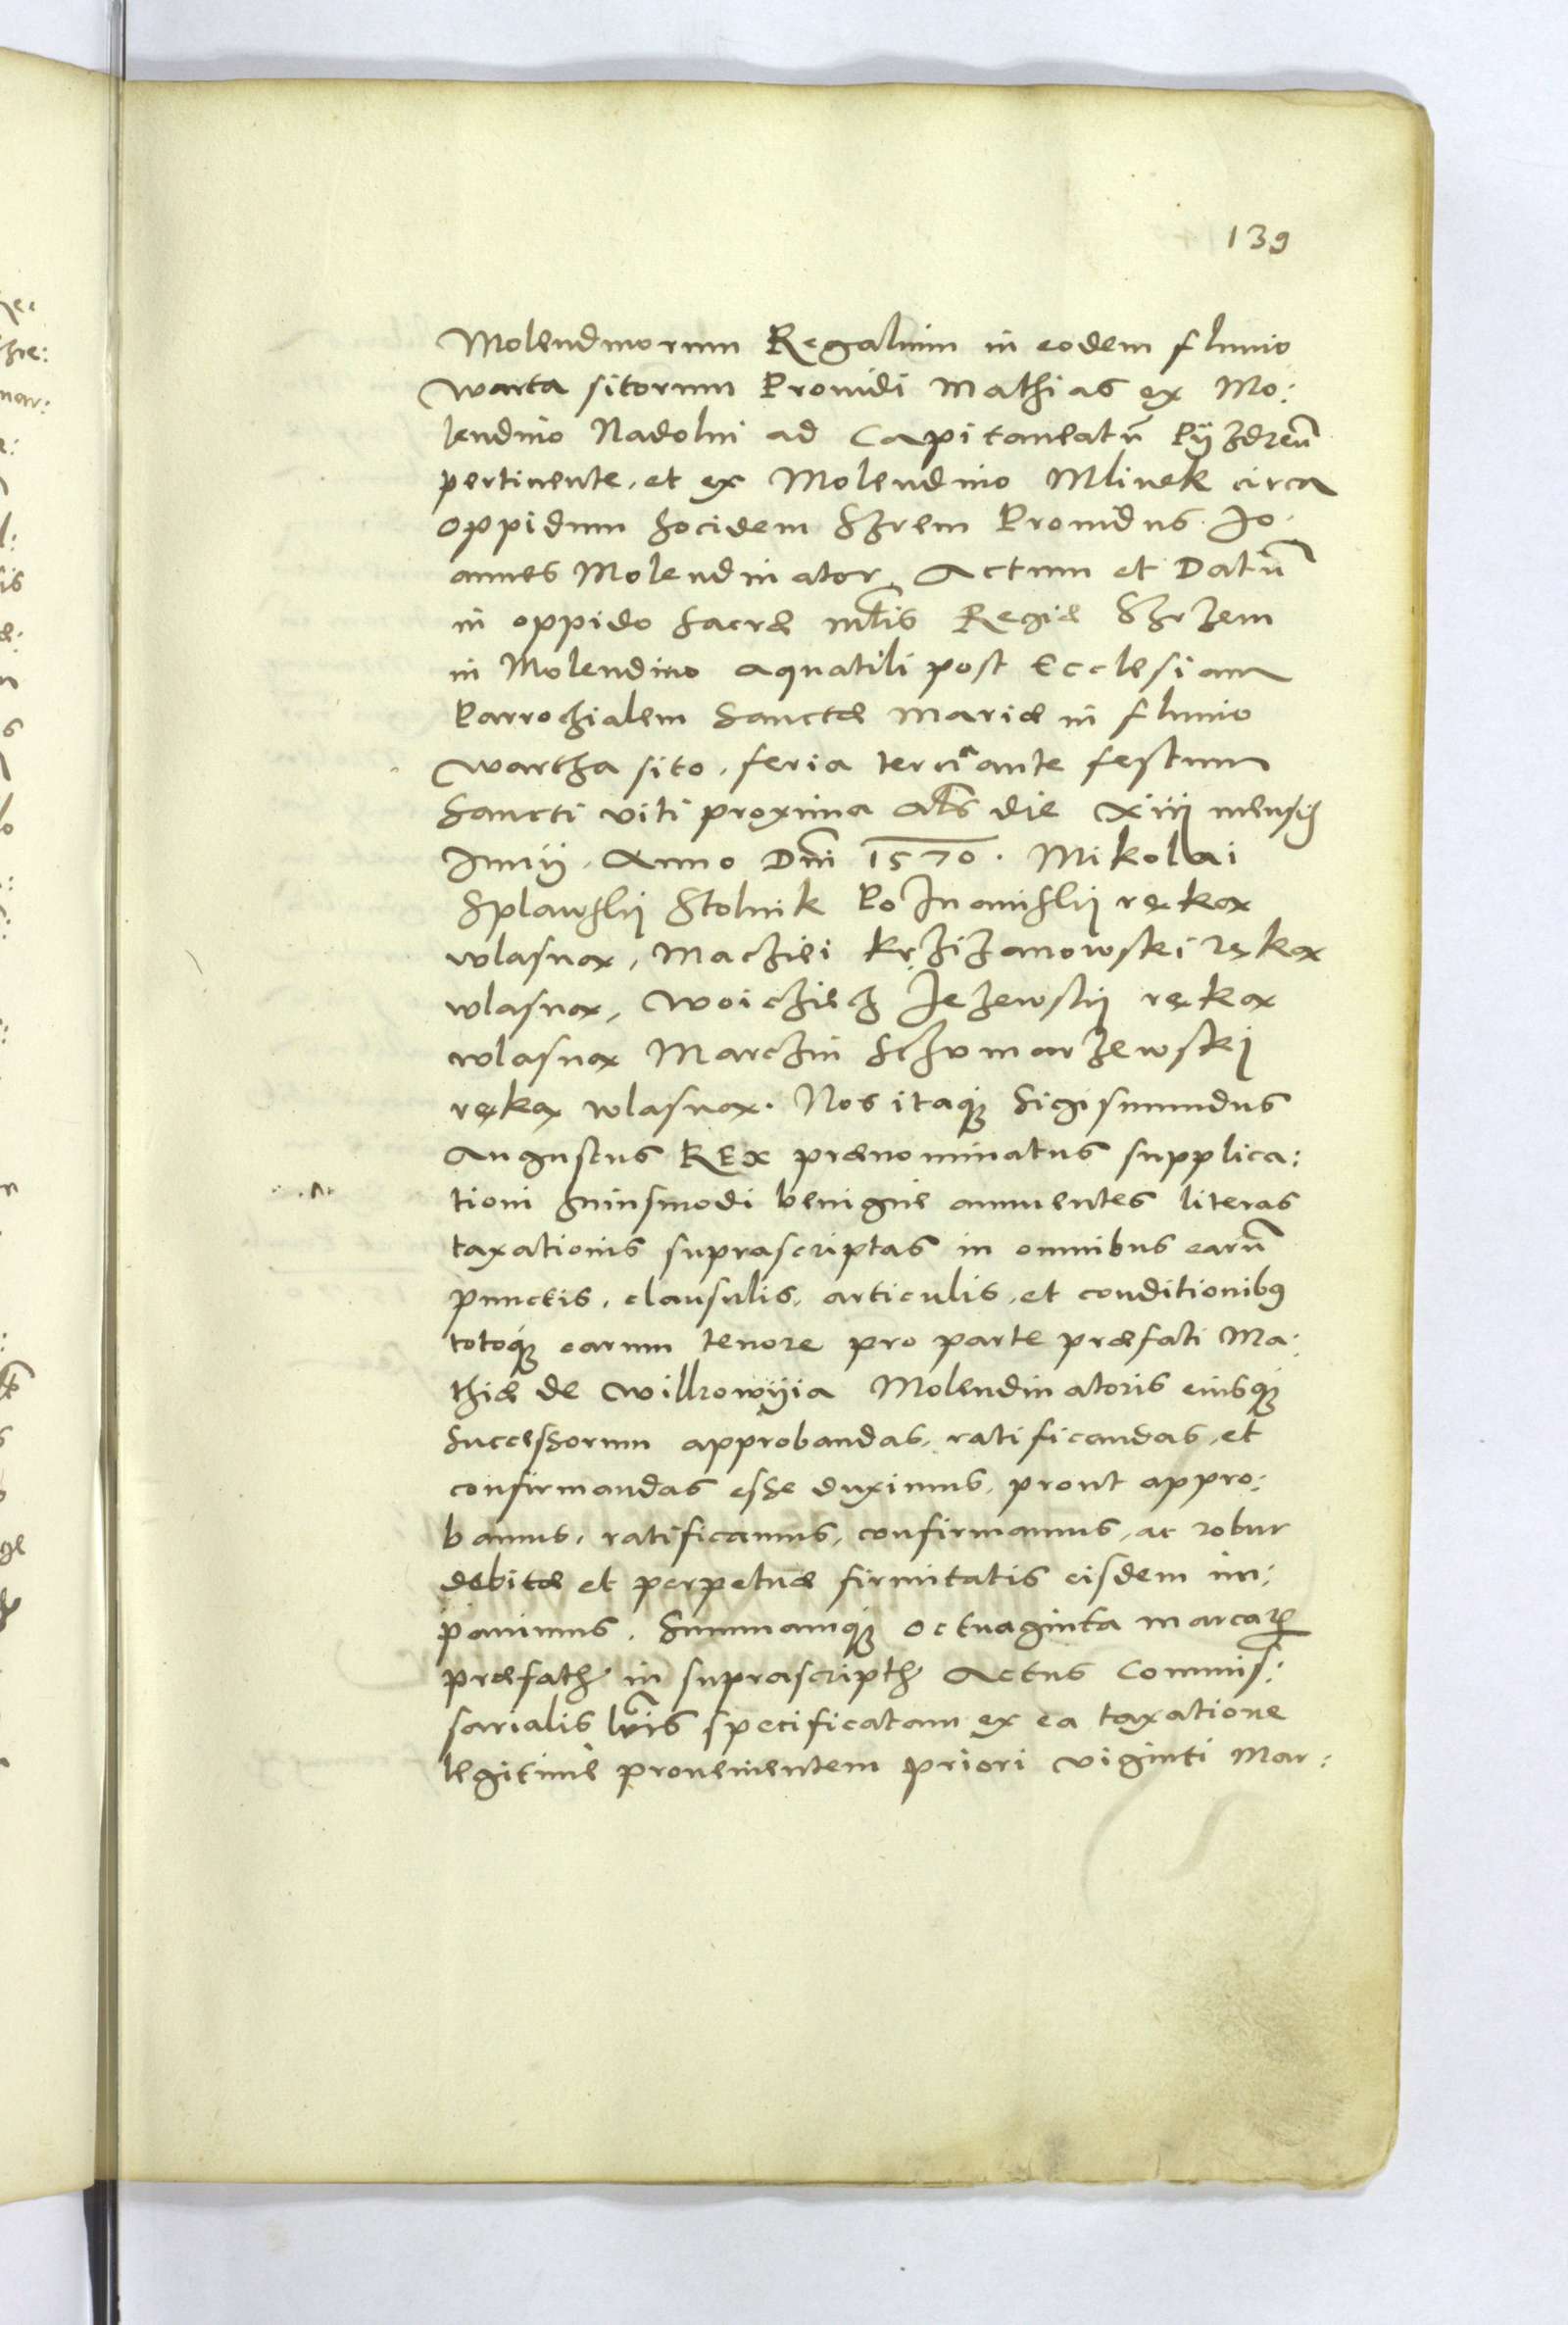 139
Molendinorum Regalium in eodem fluuio
Warta sitorum Prouidi Mathias ex Mo:
lendino Nadolni ad Capitaneatū Pÿzdreñ
pertinente, et ex Molendino Mlinek circa
oppidum hocidem Szrem Prouidus Jo:
annes Molendinator, Actum et Datū
in oppido Sacræ mtis Regiæ Szrzem
in Molendino aquatili post Ecclesiam
Parrochialem Sanctæ Mariæ in fluuio
Wartha sito, feria tercia ante festum
Sancti Viti proxima als die xiij mensis
Junij. Anno Dni 1570. Mikolai
Splawskij Stolnik Poznaniskij ręką
wlasną, Macziei Krzizanowski ręką
wlasną, Woicziech Jezewskij ręką
wlasną Marczin Schomarzewskj
ręką wlasną. Nos itaq; Sigismundus
Augustus REX prænominatus supplica:
tioni huiusmodi benigne annuentes literas
taxationis suprascriptas in omnibus earū
punctis, clausulis, articulis, et conditionibus
totoq; earum tenore pro parte præfati Ma:
thiæ de Wilkowÿia Molendinatoris eiusq;
Successorum approbandas, ratificandas, et
confirmandas esse duximus, prout appro:
bamus, ratificamus, confirmamus, ac robur
debitæ et perpetuæ firmitatis eisdem im:
ponimus. Summamq; octuaginta marcar
præfath in suprascripth Actus Commis:
sarialis lris specificatam ex ea taxatione
legitimè prouenientem priori viginti Mar: